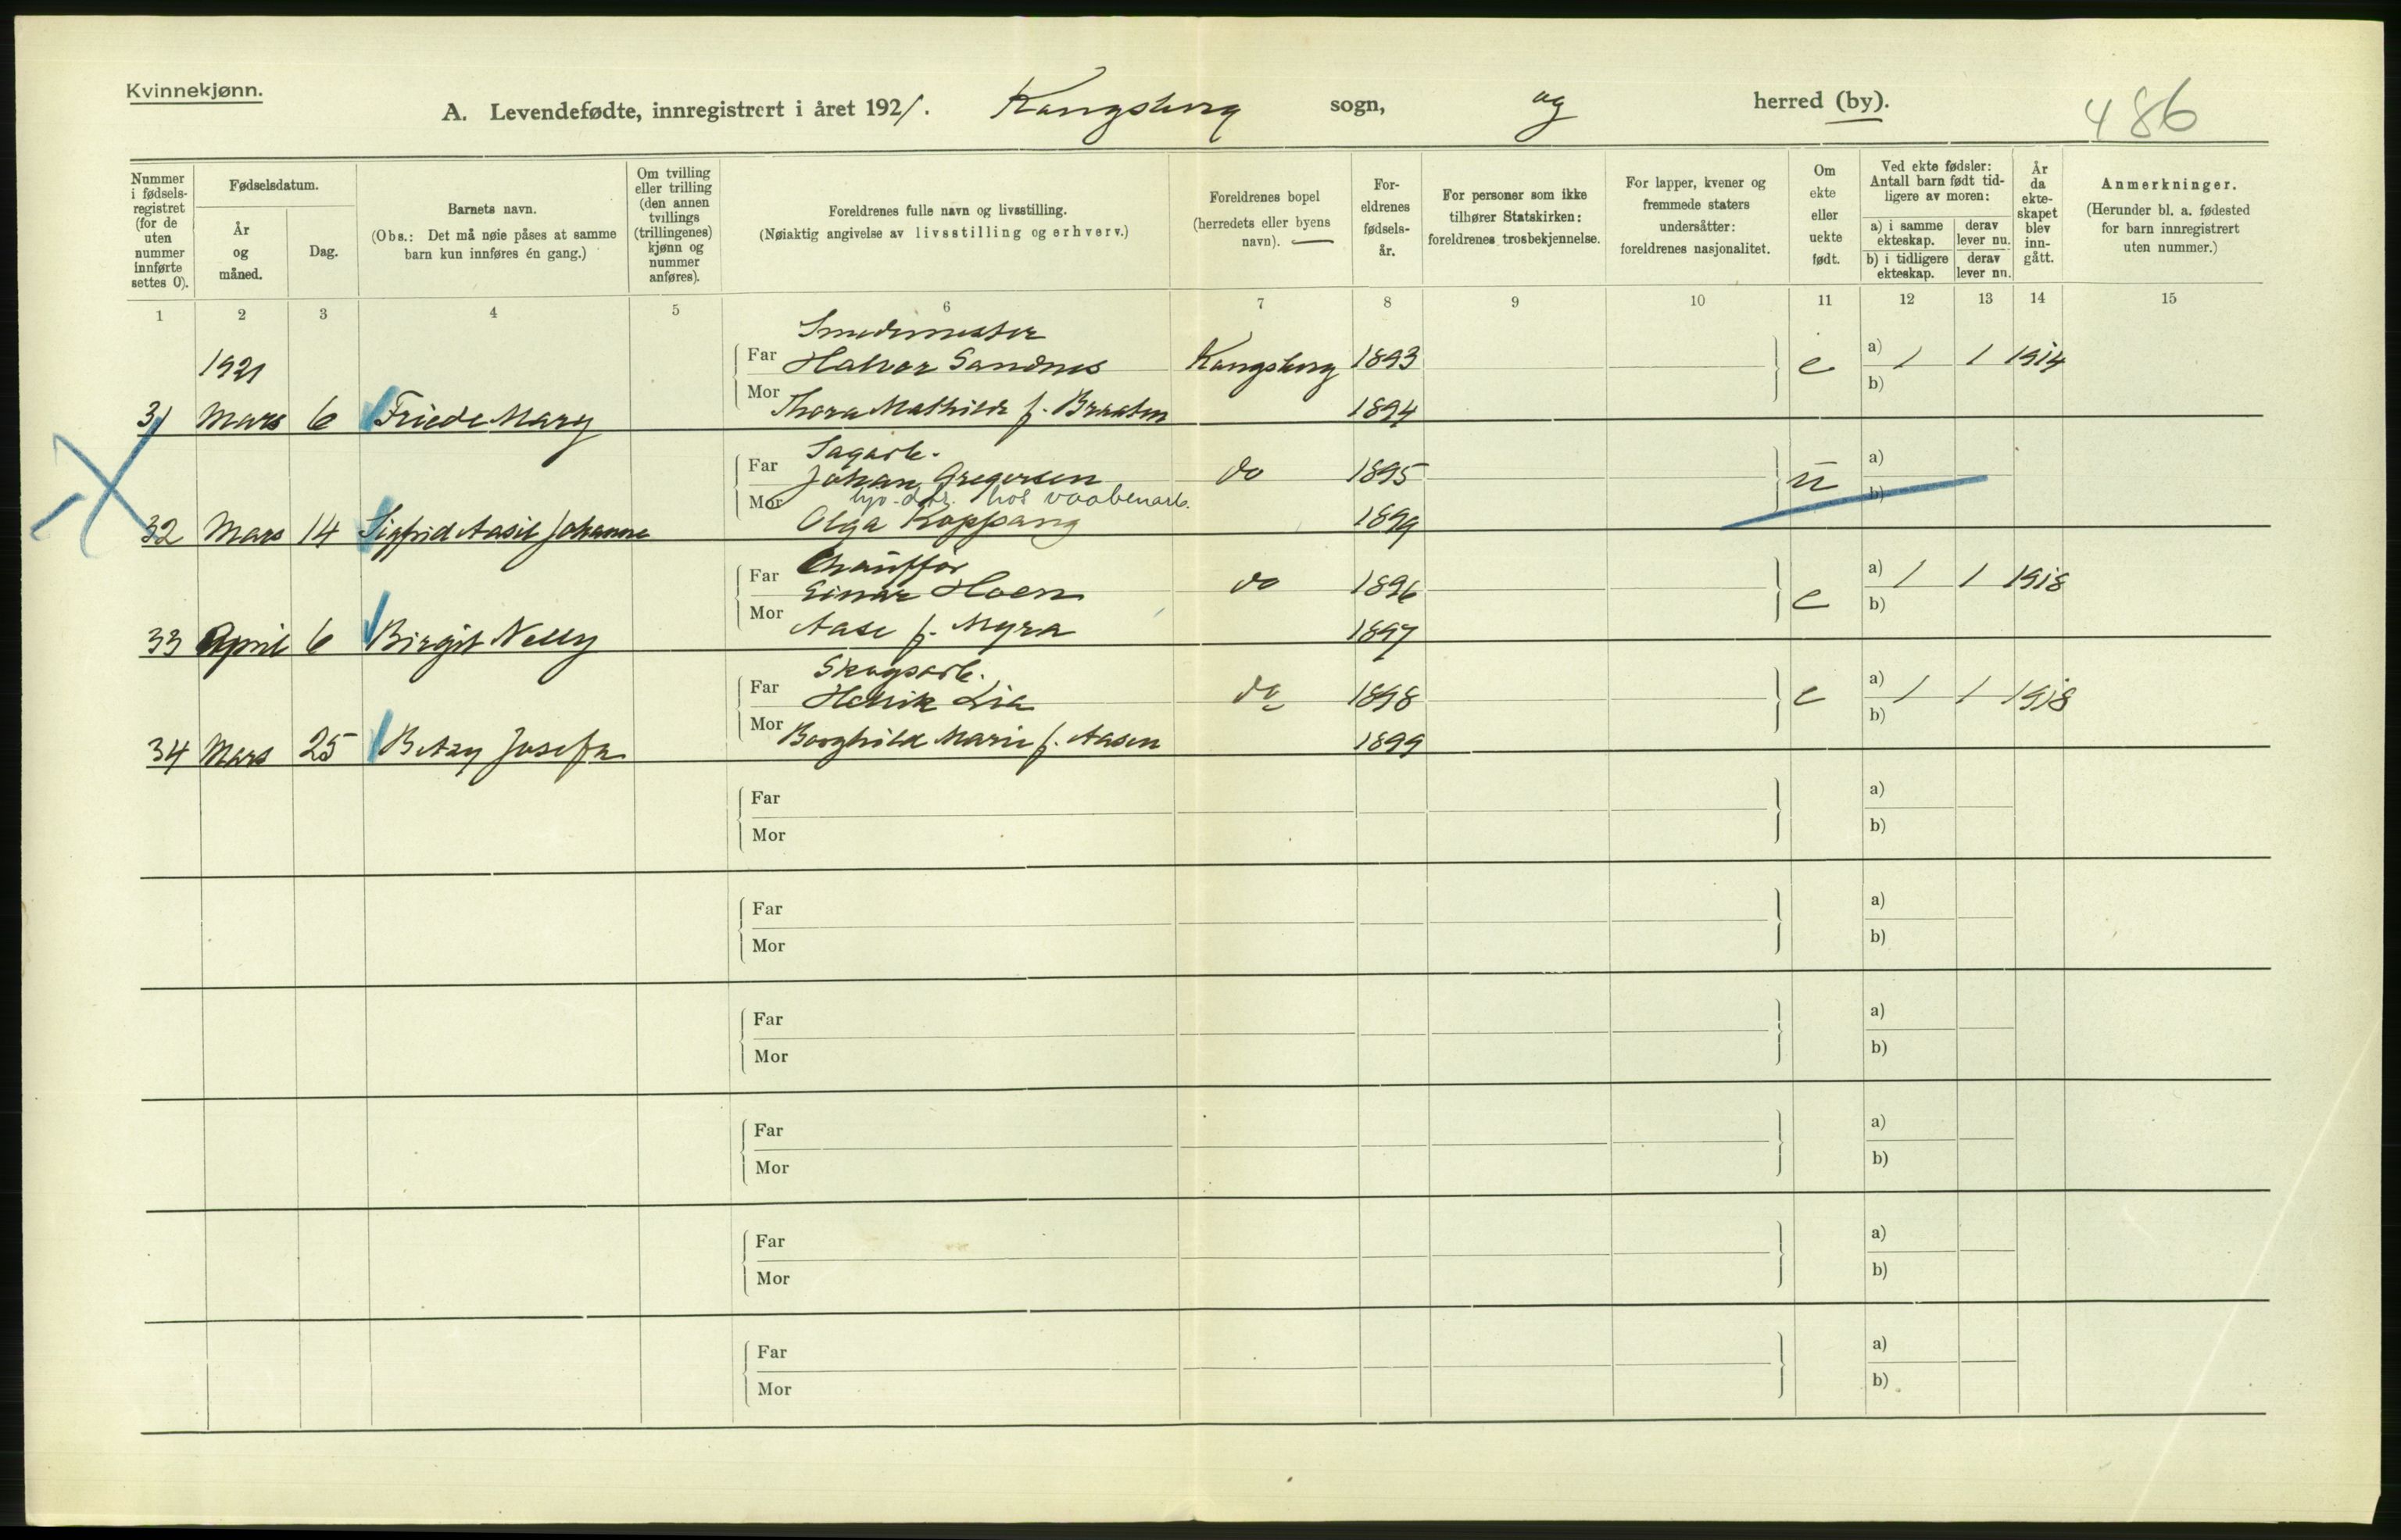 Kvinnekjønn.
A. Levendefødte, innregistrert i året 1921. Kongsberg sogn, og herred (by). 486
Nummer i fødselsregistret (for de uten nummer innførte settes 0).
Fødselsdatum.
År og måned.
Dag.
Barnets navn.
(Obs.: Det må nøie påses at samme barn kun innføres én gang.)
Om tvilling eller trilling (den annen tvillings (trillingenes) kjønn og nummer anføres).
Foreldrenes fulle navn og livsstilling.
(Nøiaktig angivelse av livsstilling og erhverv.)
Foreldrenes bopel
(herredets eller byens navn).
Foreldrenes fødselsår.
For personer som ikke tilhører Statskirken: foreldrenes trosbekjennelse.
For lapper, kvener og fremmede staters undersåtter: foreldrenes nasjonalitet.
Om ekte eller uekte født.
Ved ekte fødsler: Antall barn født tidligere av moren:
a) i samme ekteskap. derav lever nu.
b) i tidligere ekteskap. derav lever nu.
År da ekteskapet blev inngått.
Anmerkninger.
(Herunder bl. a. fødested for barn innregistrert uten nummer.)
1 2 3 4 5 6 7 8 9 10 11 12 13 14 15
Smedmester
1921 Far Halvor Sandnes Kongsberg 1893 e a) 1 1 1914
b)
31 Mars 6 Friede Mary Mor Thora Mathilde f. Braaten 1894
Sagarb.
Far Johan Gregersen do 1895 u a)
hos vaabenarb. b)
32 Mars 14 Sigfrid Aasil Johanne Mor Olga Koppang 1899
Chauffør
Far Einar Hoen do 1896 e a) 1 1 1918
b)
33 April 6 Birgit Nelly Mor Aase f. Myra 1897
Skogsarb.
Far Henrik Lia do 1898 e a) 1 1 1918
b)
34 Mars 25 Betzy Josefa Mor Borghild Marie f. Aasen 1899
Far a)
Mor b)
Far a)
Mor b)
Far a)
Mor b)
Far a)
Mor b)
Far a)
Mor b)
Far a)
Mor b)